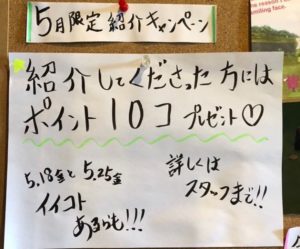 5月限定 紹介キャンペーン
紹介してくださった方には
ポイント10コ プレゼント♡
5.18金と5.25金
イイコト
あるかも!!!
詳しくは
スタッフまで!!